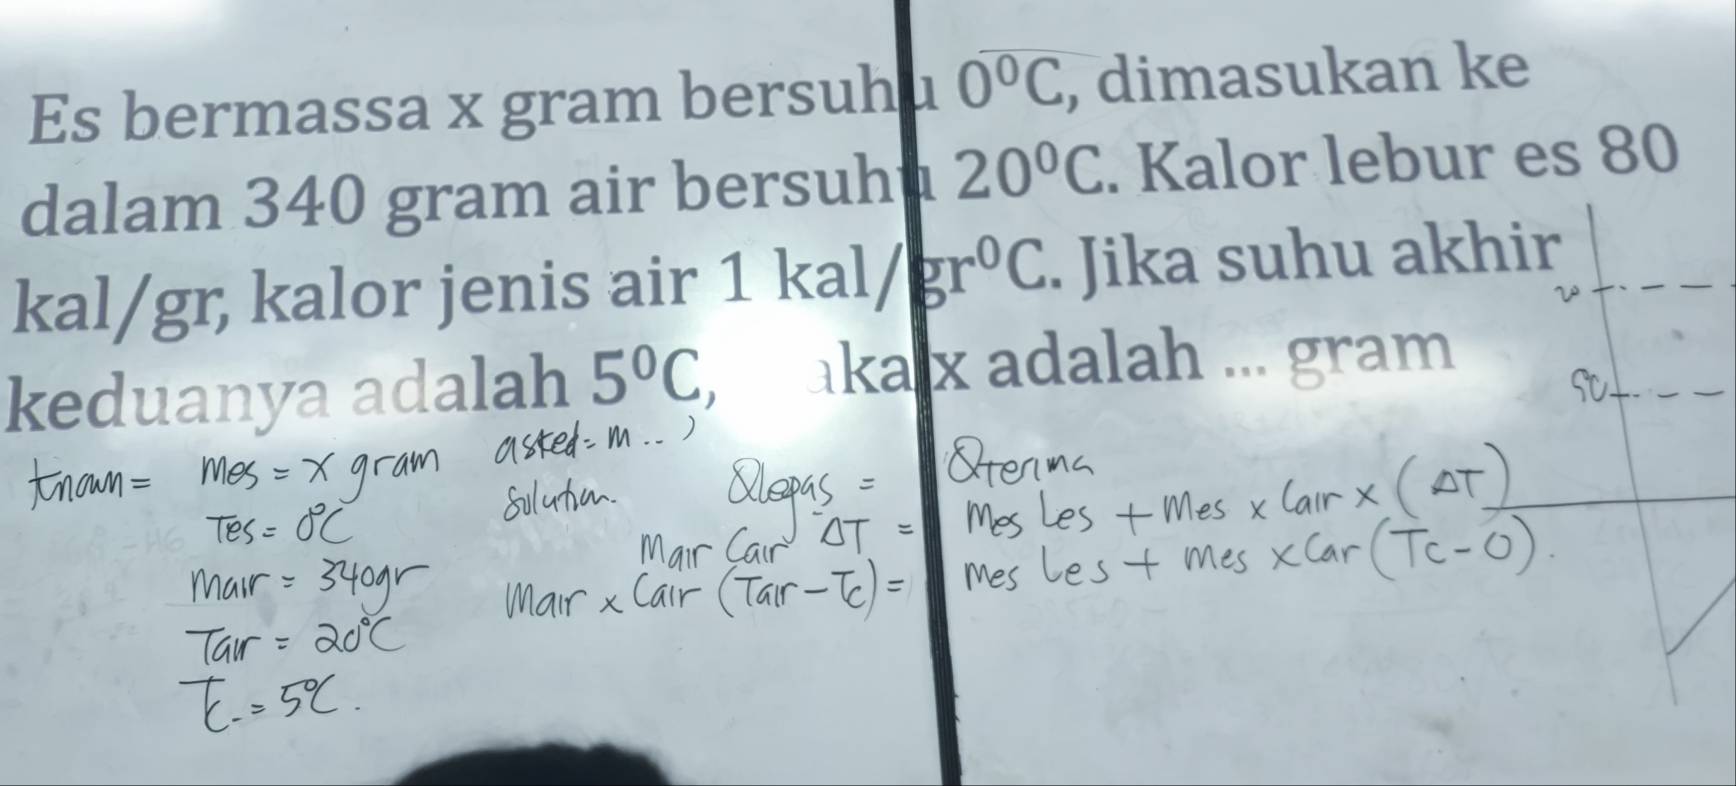 Es bermassa x gram bersuhu 0⁰C, dimasukan ke
dalam 340 gram air bersuhu 20⁰C. Kalor lebur es 80
kal/gr, kalor jenis air 1 kal/gr⁰C. Jika suhu akhir
keduanya adalah 5⁰C, aka x adalah ... gram
20
known = mes = x gram
Tes = 0°C
mair = 340gr
Tair = 20°C
Tc = 5°C.
asked = m .. ?
Solution.
Qlepas = Qterima
mair Cair ΔT = mes Les + mes x Cair x (ΔT)
mair x Cair (Tair - Tc) = mes Les + mes x Cair (Tc - 0).